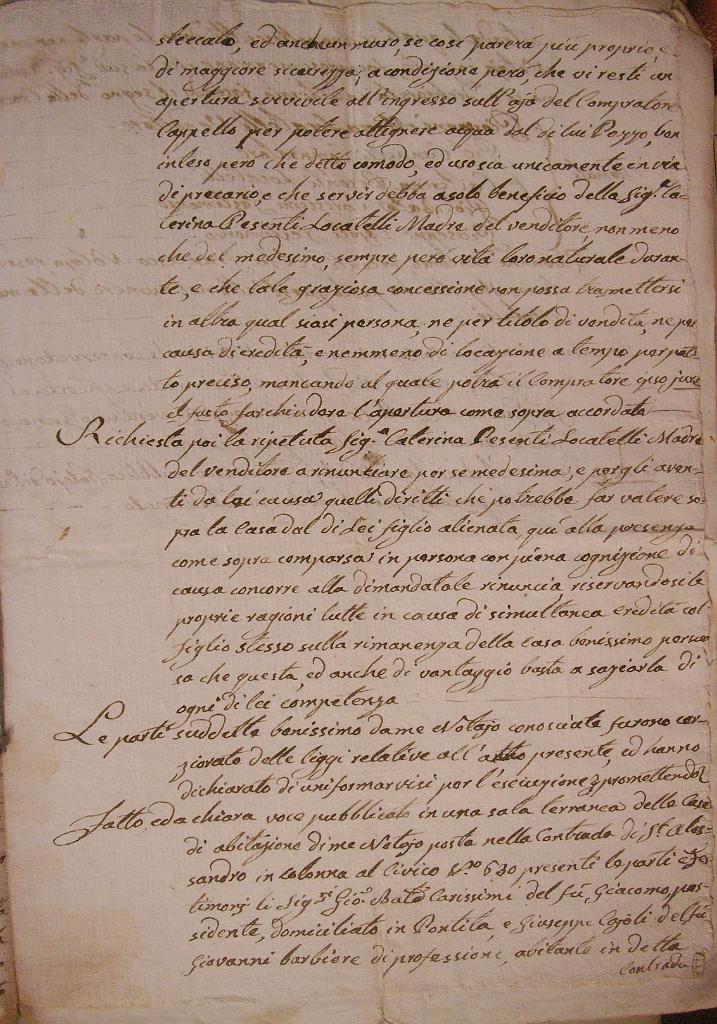 steccato, ed anche un muro, se così parerà più proprio, e
di maggiore sicurezza, a condizione però, che vi resti un
apertura servivile all'ingresso sull'aja del Compratore
Cappello per potere attignere acqua dal di lui Pozzo, ben
inteso però che detto comodo, ed uso sia unicamente in via
di precario, e che servir debba a solo beneficio della Sig.ra Ca-
terina Pesenti Locatelli Madre del venditore non meno
che del medesimo, sempre però vita loro naturale duran-
te, e che tale graziosa concessione non possa tramettersi
in altra qual siasi persona, ne per titolo di vendita, ne per
causa di eredità, e nemmeno di locazione a tempo per pat-
to preciso, mancando al quale potrà il Compratore ipso jure
et facto far chiudere l'apertura come sopra accordata
Richiesta poi la ripetuta Sig.ra Caterina Pesenti Locatelli Madre
del venditore a rinunziare per se medesima, e per gli aven-
ti da lei causa quelli diritti che potrebbe far valere so-
pra la Casa dal di Lei figlio alienata, quì alla presenza
come sopra comparsa in persona con piena cognizione di
causa concorre alla dimandatale rinuncia, riservandosi le
proprie ragioni tutte in causa di simultanea eredità col
figlio stesso sulla rimanenza della casa benissimo persua
sa che questa, ed anche di vantaggio basta a saziarla di
ogni di lei competenza
Le parti suddette benissimo da me Notajo conosciute furono cer-
ziorate delle leggi relative all'atto presente, ed hanno
dichiarato di uniformarvisi per l'esecuzione promettendo
Fatto, ed a chiara voce pubblicato in una sala terranea della Casa
di abitazione di me Notajo posta nella Contrada di St. Ales-
sandro in colonna al Civico N.ro 630 presenti le parti e Tes-
timonj li Sig.ri Gio. Batta Carissimi del fù Giacomo, pos-
sidente, domiciliato in Pontita, e Giuseppe del fù
Giovanni barbiere di professione, abitante in detta
Contrada